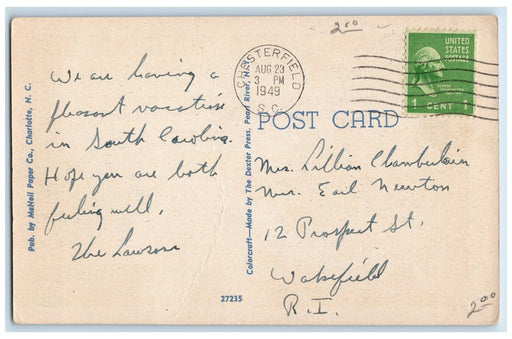 2.00
CHESTERFIELD
AUG 23
3 PM
1949
S.C.
UNITED
STATES
POSTAGE
1 CENT 1
POST CARD
We are having a
pleasant vacation
in South Carolina.
Hope you are both
feeling well,
The Lawsons
Mrs. Lillian Chamberlain
Mrs. Earl Newton
12 Prospect St,
Wakefield
R.I.
2.00
Pub. by McNeil Paper Co., Charlotte, N. C.
Colorcraft—Made by The Dexter Press, Pearl River, N. Y.
27235